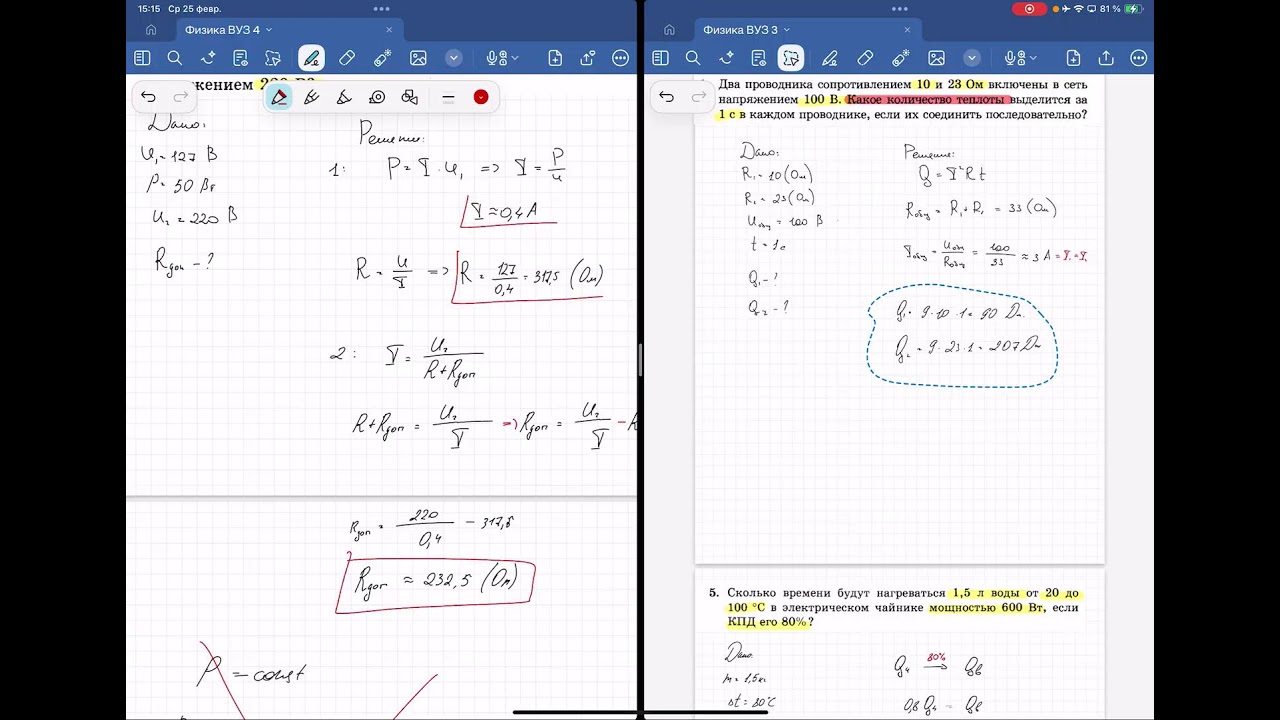 15:15 Ср 25 февр.
81 %
Физика ВУЗ 4
Физика ВУЗ 3
Дано:
U₁ = 127 В
P = 50 Вт
U₂ = 220 В
Rдоп - ?
Решение:
1: P = I · U₁ => I = P/U
I ≈ 0,4 А
R = U/I => R = 127/0,4 = 317,5 (Ом)
2: I = U₂/(R + Rдоп)
R + Rдоп = U₂/I => Rдоп = U₂/I - R
Rдоп = 220/0,4 - 317,5
Rдоп ≈ 232,5 (Ом)
P = const
Два проводника сопротивлением 10 и 23 Ом включены в сеть
напряжением 100 В. Какое количество теплоты выделится за
1 с в каждом проводнике, если их соединить последовательно?
Дано:
R₁ = 10 (Ом)
R₁ = 23 (Ом)
Uобщ = 100 В
t = 1 с
Q₁ - ?
Q₂ - ?
Решение:
Q = I²Rt
Rобщ = R₁ + R₁ = 33 (Ом)
Iобщ = Uобщ/Rобщ = 100/33 ≈ 3 А = I₁ = I₁
Q₁ = 9 · 10 · 1 = 90 Дж
Q₂ = 9 · 23 · 1 = 207 Дж
5. Сколько времени будут нагреваться 1,5 л воды от 20 до
100 °С в электрическом чайнике мощностью 600 Вт, если
КПД его 80%?
Дано:
m = 1,5 кг
Δt = 80°C
80%
Qч → Qв
0,8 Qч = Qв